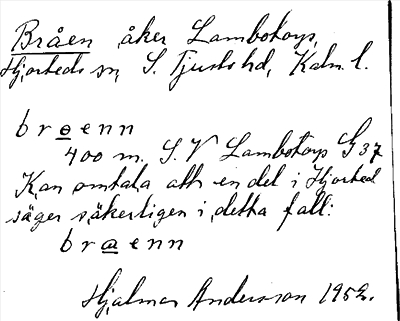 Bråen åker Lambotorp,
Hjorteds sn, S. Tjusts hd, Kalm. l.
brɵenn
400 m. S.V Lambotorp G 37
Kan omtala att en del i Hjorted
säger säkerligen i detta fall:
braenn
Hjalmar Andersson 1952.